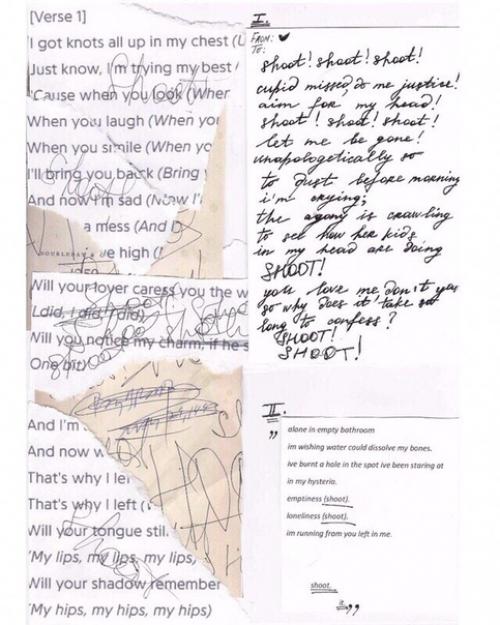 [Verse 1]
'I got knots all up in my chest (
Just know, I'm trying my best
'Cause when you look (Wher
When you laugh (When you
When you smile (When yo
I'll bring you back (Bring y
And now I'm sad (Now I'
a mess (And
DOUBLEDAY &
've high (
Will your lover caress you the w
I did, I did, I did)
Will you notice my charm, if he s
One bit)
And I'm
And now w
That's why I le
That's why I left (
Will your tongue stil
'My lips, my lips, my lips,
Will your shadow remember
'My hips, my hips, my hips)
Shoot
Shoot
Shoot
I.
FROM: ♥
TO:
shoot! shoot! shoot!
cupid missed, do me justice!
aim for my head!
shoot! shoot! shoot!
let me be gone!
unapologetically so
to just before morning
i'm crying;
the agony is crawling
to see how her kids
in my head are doing
SHOOT!
you love me, don't you
so why does it take so
long to confess?
SHOOT!
SHOOT!
II.
"
alone in empty bathroom
im wishing water could dissolve my bones.
ive burnt a hole in the spot ive been staring at
in my hysteria.
emptiness (shoot).
loneliness (shoot).
im running from you left in me.
shoot.
"